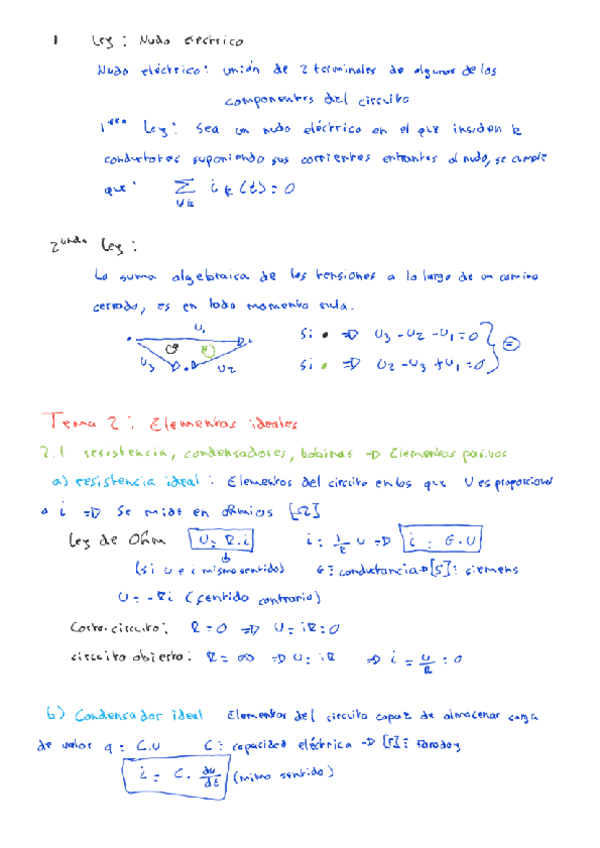 1 Ley: Nudo eléctrico
Nudo eléctrico: unión de 2 terminales de algunos de los
componentes del circuito
1era Ley: Sea un nudo eléctrico en el que insiden k
conductores suponiendo sus corrientes entrantes al nudo, se cumple
que: Σ ik(t) = 0
∀k
2unda Ley:
La suma algebraica de las tensiones a lo largo de un camino
cerrado, es en todo momento nula.
U1
U3 U2
Si • => U3 - U2 - U1 = 0
Si • => U2 - U3 + U1 = 0
Tema 2: Elementos ideales
2.1. resistencia, condensadores, bobinas => Elementos pasivos
a) resistencia ideal: Elementos del circuito en los que U es proporcional
a i => Se mide en ohmios [Ω]
Ley de Ohm U = R.i i = 1/R U => i = G.U
(si U e i mismo sentido) G ≡ conductancia => [S]: siemens
U = -Ri (sentido contrario)
Corto-circuito: R = 0 => U = iR = 0
circuito abierto: R = ∞ => U = iR => i = U/R = 0
b) Condensador ideal Elementos del circuito capaz de almacenar carga
de valor q = C.U C ≡ capacidad eléctrica => [F] ≡ Faraday
i = C. du/dt (mismo sentido)